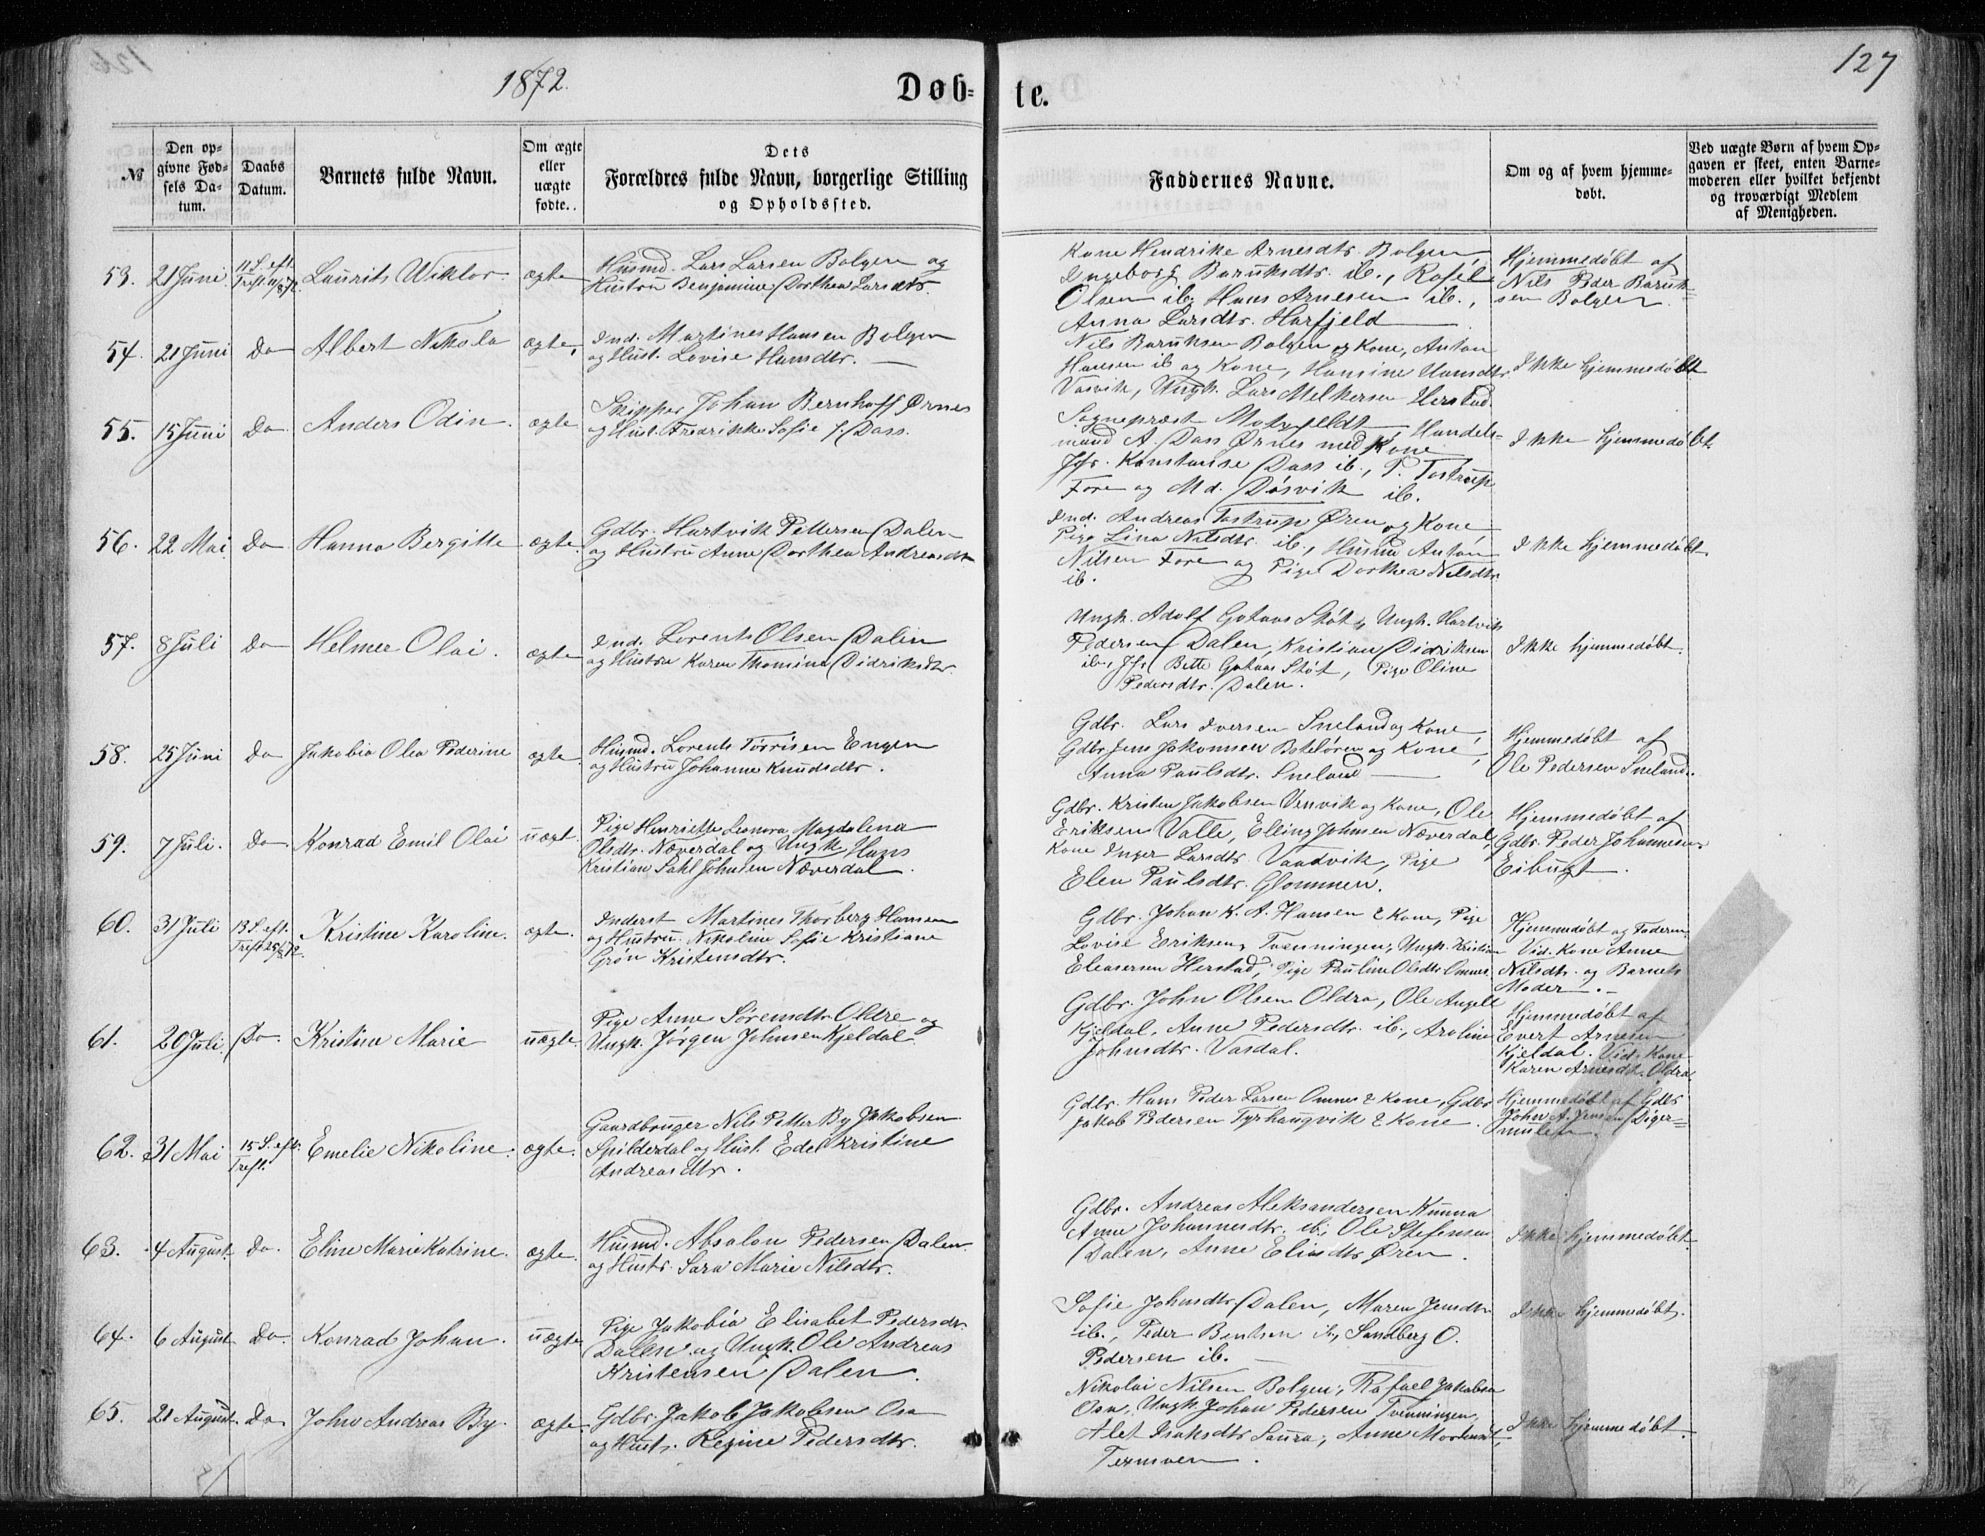 1872.
Døb-
te.
127
№
Den op-
givne Fød-
sels Da-
tum.
Daabs
Datum.
Barnets fulde Navn.
Om ægte
eller
uægte
fødte.
Dets
Forældres fulde Navn, borgerlige Stilling
og Opholdssted.
Faddernes Navne.
Om og af hvem hjemme-
døbt.
Ved uægte Børn af hvem Op-
gaven er skeet, enten Barne-
moderen eller hvilket bekjendt
og troværdigt Medlem
af Menigheden.
53.
21 Juni
11 S. eft.
Tref. 11/8 72.
Laurits Wiktor
ægte
Husmd. Lars Larsen Bolgen og
Hustru Benjamine Dorthea Larsdtr.
Kone Hendrike Arnesdtr. Bolgen,
Ingeborg Baruksdtr. ib., Rafel
Olsen ib., Hans Arnesen ib.,
Anna Larsdtr. Harfjeld
Hjemmedøbt af
Nils Peder Baruk-
sen Bolgen.
54.
21 Juni
Do
Albert Nikolai
ægte,
Ind. Martines Hansen Bolgen
og Hust. Lovise Hansdtr.
Nils Baruksen Bolgen og Kone, Anton
Hansen ib og Kone, Hansine Hansdtr
Vasvik, Ungk. Lars Melkersen Herstad.
Ikke hjemmedøbt
55.
15 Juni
Do
Anders Odin.
ægte
Skipper Johan Bernhoff Ørnes
og Hust. Fredrikke Sofie f. Dass.
Sognepræst Motzfeldt, Handels-
mand A. Dass Ørnes med Kone
Jfr. Konstanse Dass ib., P. Tostrup
Fore og Md. Døsvik ib.
Ikke hjemmedøbt
56.
22 Mai
Do
Hanna Bergitte
ægte.
Gdbr. Hartvik Pettersen Dalen
og Hustru Anne Dorthea Andreasdtr
Ind. Andreas Tostrup Øren og Kone
Pige Lina Nilsdtr. ib., Husmd Anton
Nilsen Fore og Pige Dorthea Nilsdtr
ib.
Ikke hjemmedøbt
57.
8 Juli
Do
Helmer Olai.
ægte
Ind. Lorents Olsen Dalen
og Hustru Karen Thomine Didriksdtr.
Ungk. Adolf Gotaas Støt, Ungk. Hartvik
Pedersen Dalen, Kristian Didriksen
ib., Jfr. Bette Gotaas Støt, Pige Oline
Pedersdtr. Dalen.
Ikke hjemmedøbt.
58.
25 Juni
Do
Jakobia Olea Pederine
ægte.
Husmd. Lorents Tørrisen Engen
og Hustru Johanne Knudsdtr.
Gdbr. Lars Iversen Sneland og Kone,
Gdbr. Jens Jakobsen Boteløren og Kone,
Anna Paulsdtr. Sneland
Hjemmedøbt af
Ole Pedersen Sneland.
59.
7 Juli.
Do
Konrad Emil Olai
uægt.
Pige Henriette Leonora Magdalena
Olsdtr. Næverdal og Ungk. Hans
Kristian Dahl Johnsen Næverdal.
Gdbr. Kristen Jakobsen Venvik og Kone, Ole
Eriksen Valle, Elling Johnsen Næverdal,
Kone Inger Larsdtr. Vaadvik, Pige
Elen Paulsdtr. Glommen.
Hjemmedøbt af
Gdbr. Peder Johannesen
Eibugt.
60.
31 Juli
13 S. eft.
Tref. 25/8 72.
Kristine Karoline.
ægte.
Inderst Martines Thorberg Hansen
og Hustru Nikoline Sofie Kristiane
Grøn Kristensdtr.
Gdbr. Johan K. A. Hansen & Kone, Pige
Lovise Eriksen, Tvenningen, Ungk. Kristian
Eleasersen Herstad, Pige Pauline Olsdtr Omnes.
Hjemmedøbt og Faderen
Vid. Kone Anne
Nilsdtr. og Barnets
Moder.
61.
20 Juli.
Do
Kristine Marie
uægte.
Pige Anne Sørensdtr Oldre og
Ungk. Jørgen Johnsen Kjeldal
Gdbr. John Olsen Oldra, Ole Angell
Kjeldal, Anne Pedersdtr. ib., Aroline
Johnsdtr. Vasdal.
Hjemmedøbt af
Evert Arnesen
Kjeldal. Vid. Kone
Karen Arnesdtr. Oldra
62.
31 Mai
15 S. eft.
Tref.
Emelie Nikoline.
ægte.
Gaardbruger Nils Petter By Jakobsen
Spilderdal og Hust. Edel Kristine
Andreasdtr.
Gdbr. Hans Peder Larsen Omnes & Kone, Gdbr
Jakob Pedersen Tyrhaugvik & Kone.
Hjemmedøbt af Gdbr
John A. Jensen Diger-
mulen.
63.
4 August.
Do.
Eline Marie Katrine.
ægte.
Husmd. Absalon Pedersen Dalen
og Hustr. Sara Marie Nilsdtr.
Gdbr. Andreas Aleksandersen Kunna
Anne Johannesdtr. ib., Ole Stefensen
Dalen, Anne Eliasdtr. Øren.
Ikke hjemmedøbt.
64.
6 August
Do.
Konrad Johan.
uægte
Pige Jakobia Elisabet Pedersdr.
Dalen og Ungk. Ole Andreas
Kristensen Dalen.
Sofie Johnsdtr Dalen, Maren Jensdtr
ib., Peder Bentsen ib., Sandberg O.
Pedersen ib.
Ikke hjemmedøbt.
65.
21 August.
Do
John Andreas By.
ægte.
Gdbr. Jakob Jakobsen Osa
og Hust. Regine Pedersdtr.
Nikolai Nilsen Bolgen, Rafael Jakobsen
Osa, Ungk. Johan Pedersen Tvenningen,
Alet Isaksdtr Saura, Anne Mortensdt,
Texmoen.
Ikke hjemmedøbt.